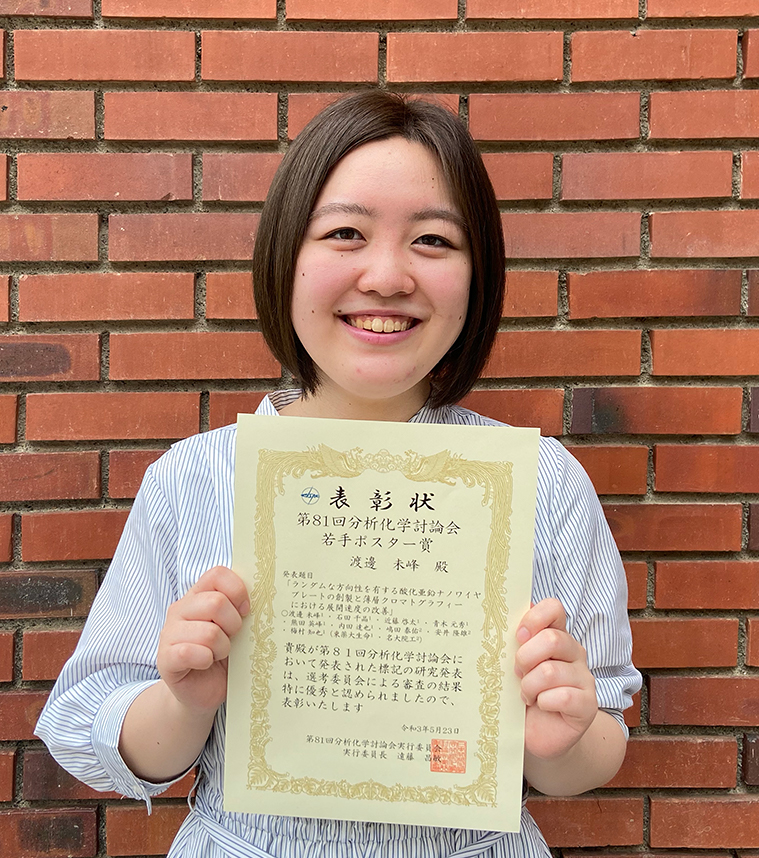 表彰状
第81回分析化学討論会
若手ポスター賞
渡邉 未峰 殿
発表題目
「ランダムな方向性を有する酸化亜鉛ナノワイヤ
プレートの創製と薄層クロマトグラフィー
における展開速度の改善」
○渡邉 未峰¹・石田 千晶¹・近藤 啓太¹・青木 元秀¹
・熊田 英峰¹・内田 達也¹・嶋田 泰佑²・安井 隆雄²
・梅村 知也¹(東薬大生命¹・名大院工²)
貴殿が第81回分析化学討論会に
おいて発表された標記の研究発表
は、選考委員会による審査の結果
特に優秀と認められましたので、
表彰いたします
令和3年5月23日
第81回分析化学討論会実行委員会
実行委員長 遠藤 昌敏